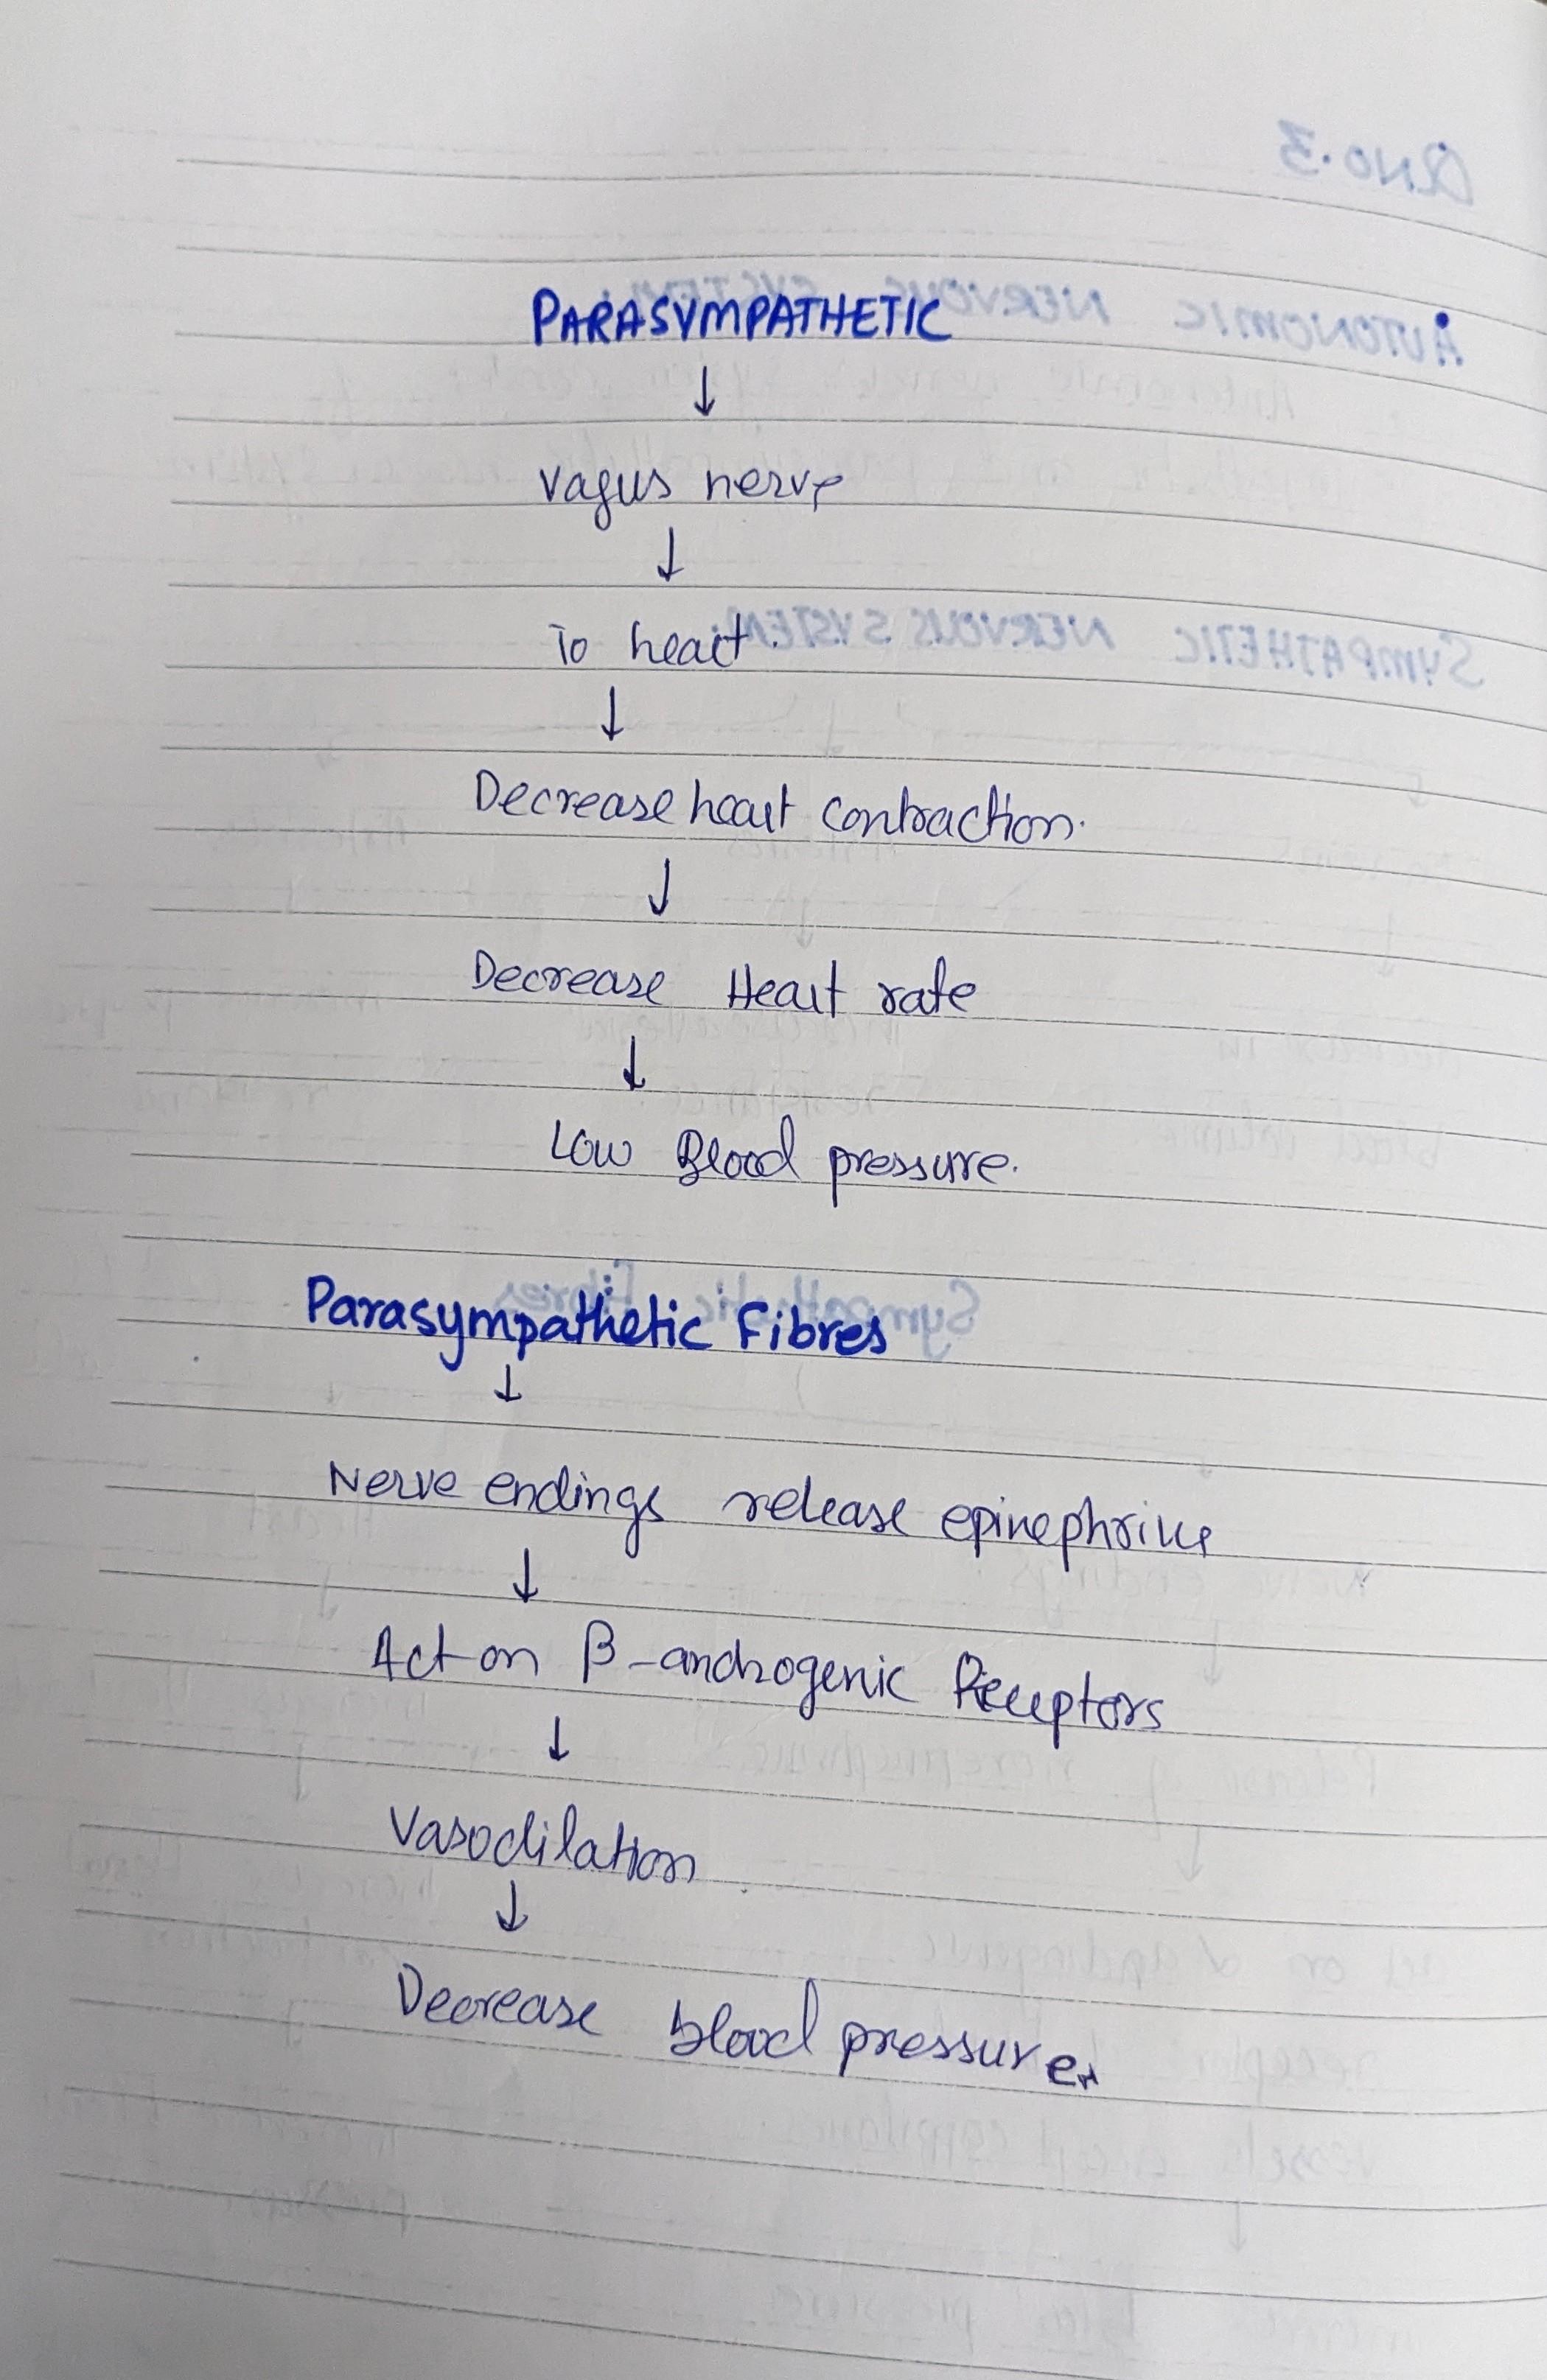 PARASYMPATHETIC
↓
Vagus nerve
↓
To heart.
↓
Decrease heart contraction.
↓
Decrease Heart rate
↓
Low Blood pressure.
Parasympathetic Fibres
↓
Nerve endings release epinephrine
↓
Act on β-androgenic Receptors
↓
Vasodilation
↓
Decrease blood pressure.